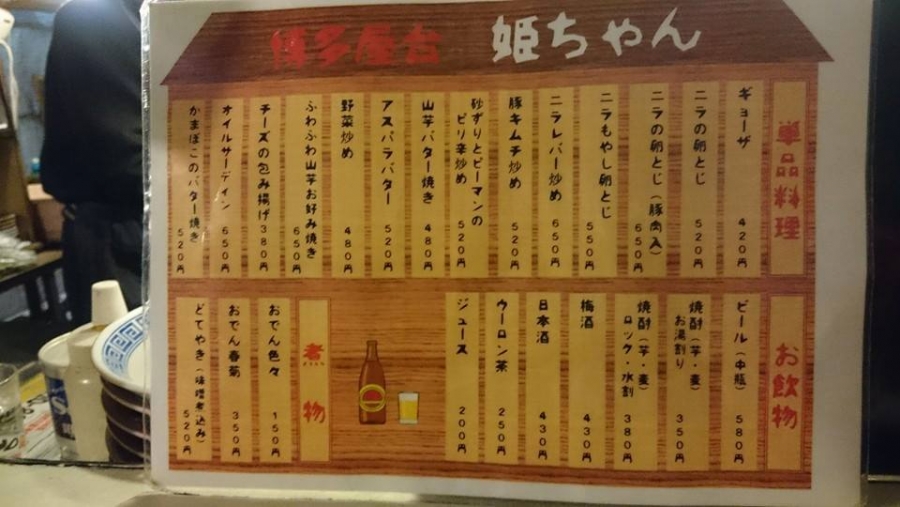 博多屋台 姫ちゃん
単品料理
ギョーザ 420円
ニラの卵とじ 520円
ニラの卵とじ(豚肉入) 650円
ニラもやし卵とじ 550円
ニラレバー炒め 650円
豚キムチ炒め 520円
砂ずりとピーマンの
ピリ辛炒め 520円
山芋バター焼き 480円
アスパラバター 520円
野菜炒め 480円
ふわふわ山芋お好み焼き 650円
チーズの包み揚げ 380円
オイルサーディン 650円
かまぼこのバター焼き 520円
お飲物
ビール(中瓶) 580円
焼酎(芋・麦)
お湯割り 350円
焼酎(芋・麦)
ロック・水割 380円
梅酒 430円
日本酒 430円
ウーロン茶 250円
ジュース 200円
煮物
おでん色々 150円
おでん春菊 350円
どてやき(味噌煮込み) 520円